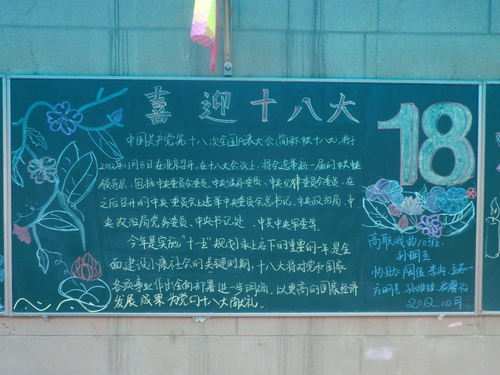 喜迎十八大
18
中国共产党第十八次全国代表大会(简称党十八大)将于
2012年11月8日在北京召开,在十八大会议上,将会选举新一届的中央
领导层,包括中央委员会委员、中央候补委员、中央纪律委员会委员,在
之后召开的中央委员会上选举中央委员会总书记、中央政治局、中
央政治局常务委员、中央书记处、中共中央军委等。
今年是实施"十二五"规划承上启下的重要的一年,是全
面建设小康社会的关键时期,十八大将对党和国家
各项事业作出全面部署进一步调动,以更高的国家经济
发展成果为党的十八大献礼。
高职戏曲10班
孙明玉
协助
2012.10月